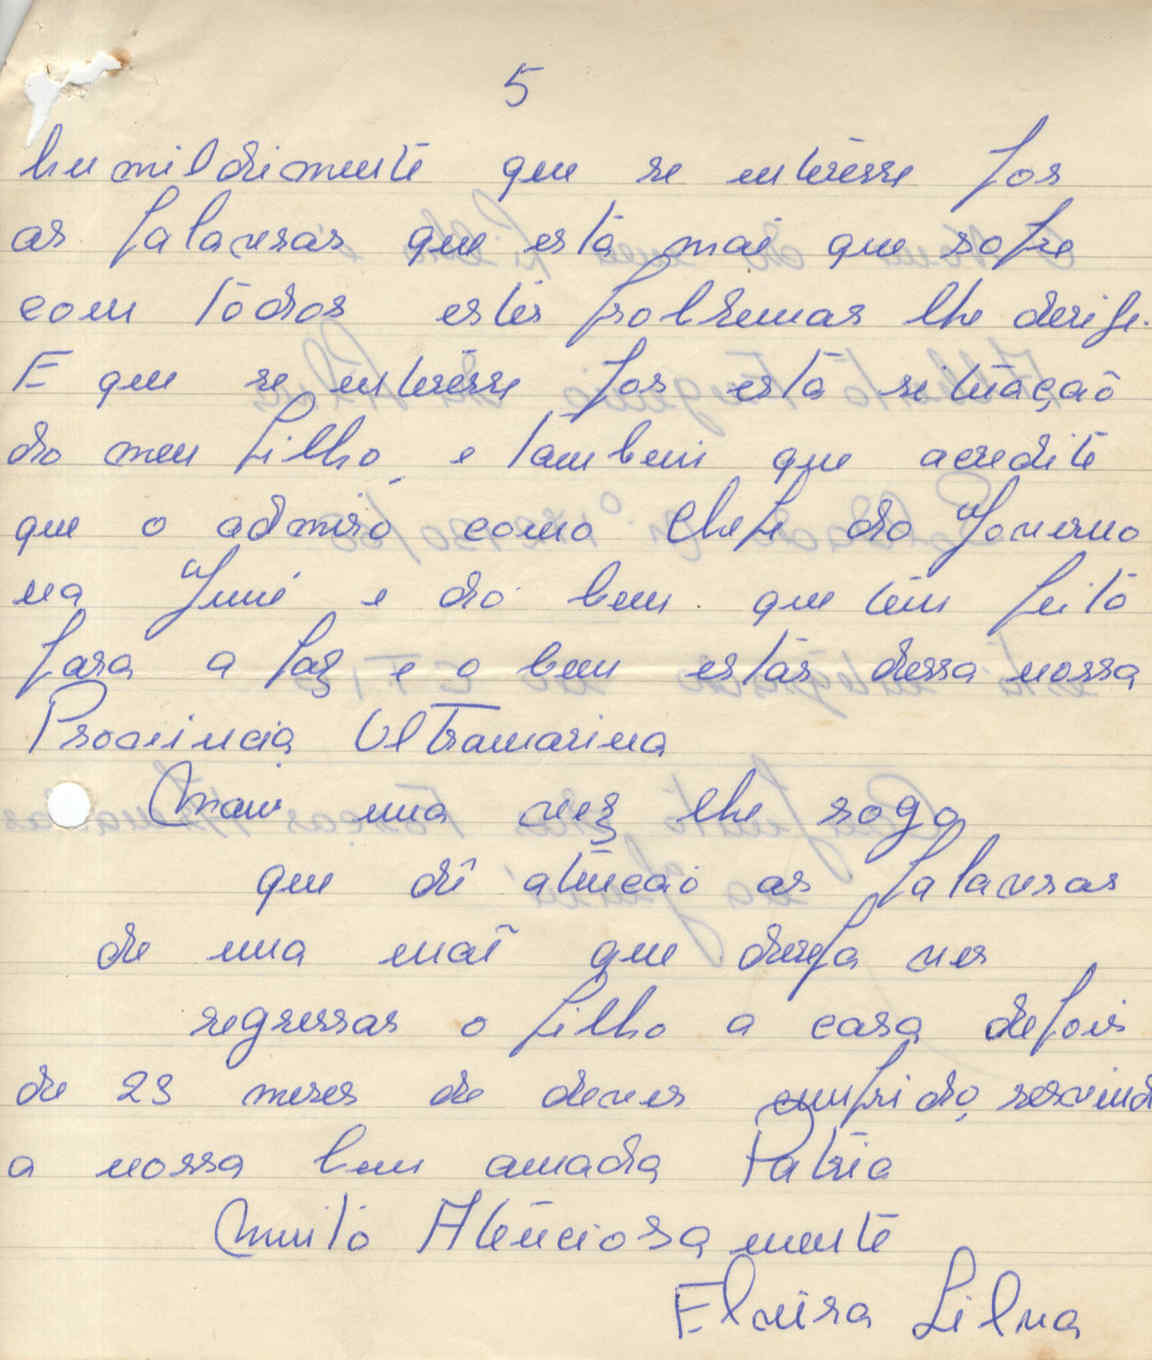 5
humildremente que se enterèsse por
as palavras que está maé que sofre
com tôdos estes problemas lhe derige.
E que se enterèsse por está setuação
do meu filho, e tambem que acredite
que o admiro como chefe do Governo
na Guiné e do bem que têm feito
para a paz e o bem estar dessa nossa
Provincia Ultramarina
Mais uma vez lhe rogo
que dê atencão as palavras
de uma maê que deseja ver
regressar o filho a casa depois
de 23 meses de dever cumprido, servind
a nossa bem amada Pátria
Muito Atênciosamente
Elvira Silva